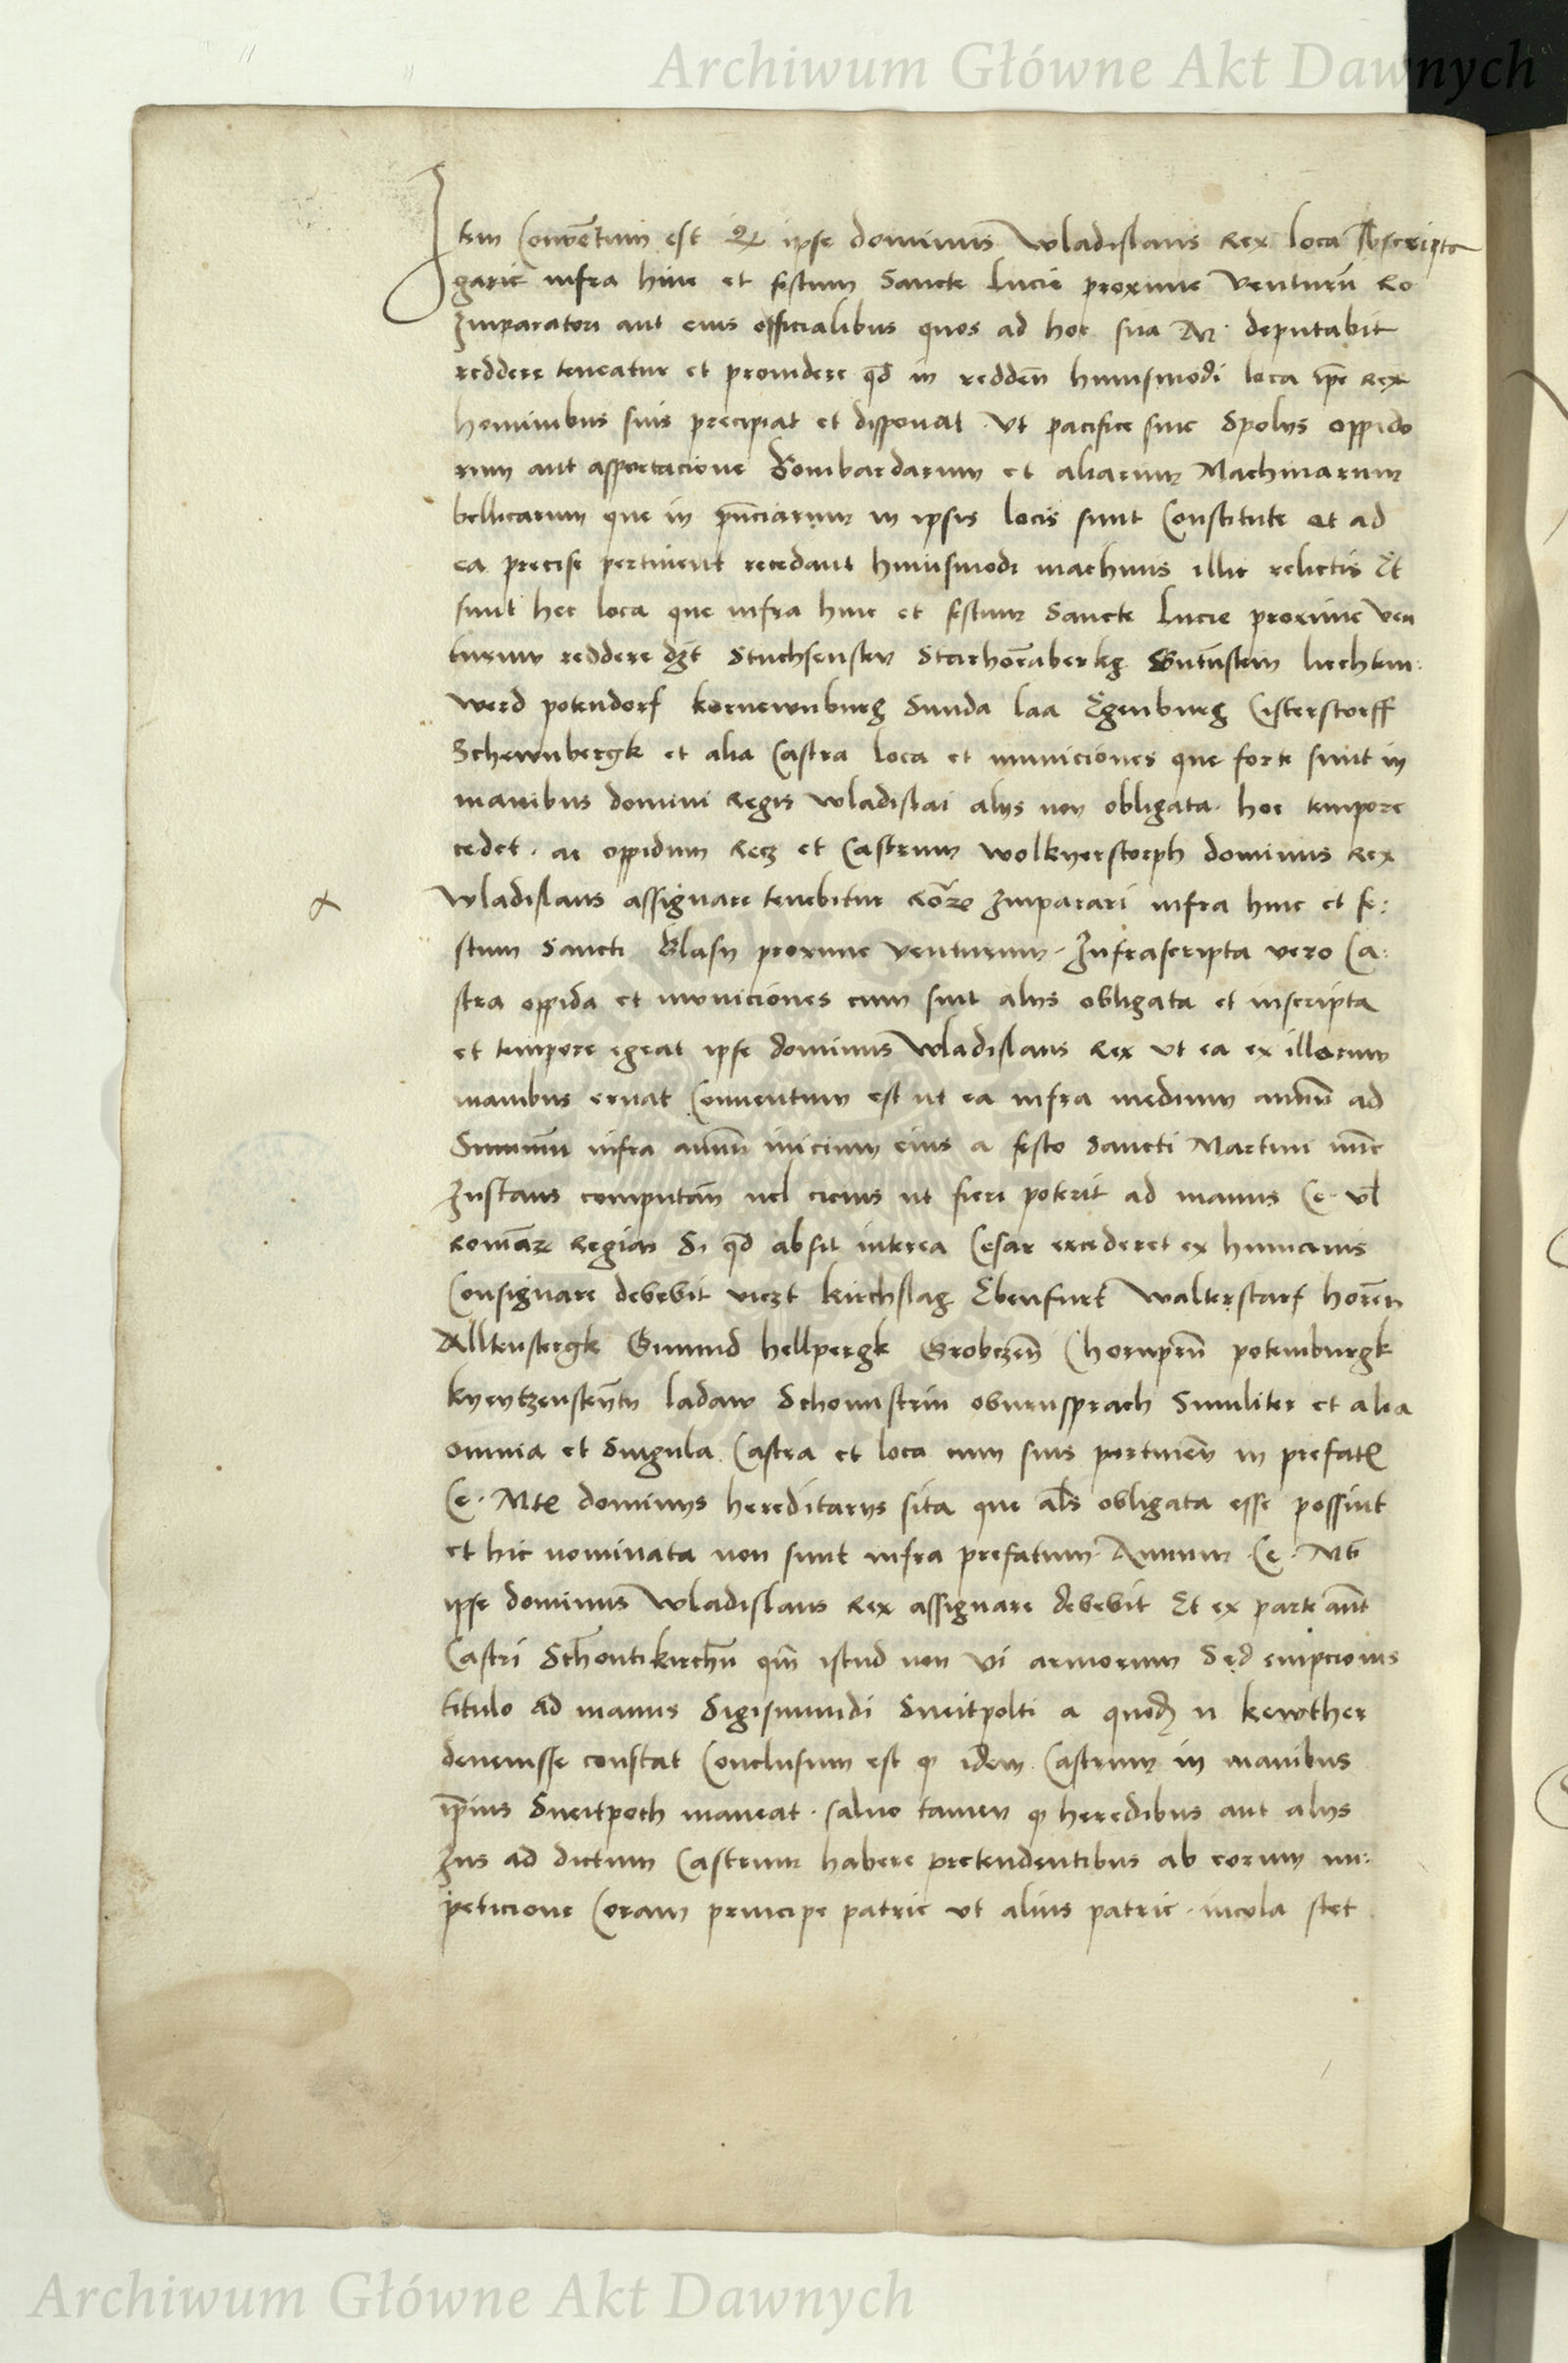 Archiwum Główne Akt Dawnych
Item Conventum est Qz ipse dominus Wladislaus Rex loca Subscripta
garie infra hinc et festum Sancte Lucie proxime Venturū Ro
Imparatori aut eius officialibus quos ad hoc sua M. deputabit
reddere teneatur et providere qd in redden̄ huiusmodi loca ip̄e Rex
hominibus suis precipiat et disponat Vt pacifice sine Spolijs oppido
rum aut asportacione Bombardarum et aliarum Machinarum
bellicarum que in in ipsis locis sunt Constitute et ad
ea precise pertinent recedant huiusmodi machinis illic relictis Et
sunt hec loca que infra hinc et festum Sancte Lucie proxime Ven
turum reddere Stuchsensten Starhoēnberkg Gutnstein liechten:
werd potendorf kornewnburg Sunda laa Egenburg Cisterstorff
Schewnbergk et alia Castra loca et municiones que forte sunt in
manibus domini Regis wladislai alijs non obligata. hoc tempore
cedet. ac oppidum Recz et Castrum wolknerstorph dominus Rex
Wladislaus assignare tenebitur Imparari infra hinc et fe:
stum Sancti Blasij proxime venturum. Infrascripta vero Ca:
stra oppida et municiones cum sint alijs obligata et inscripta
et tempore egeat ipse dominus Wladislaus Rex vt ea ex illorum
manibus eruat Conventum est ut ea infra medium annū ad
Summū infra annū inicium eius a festo Sancti Martini nūc
Instans computan̄ vel cicius ut fieri poterit ad manus Ce. vl
Romāz Regiam Si qd absit interea Cesar excederet ex humanis
Consignare debebit viczt kirchslag Ebenfurt Walterstarf horēn
Alltenstergk Gmund hellpergk Grobczen̄ Chornprun̄ potemburgk
kyentzenstēntn ladaw Schonnstein obvrnsprach Similiter et alia
omnia et Singula Castra et loca cum suis pertinen̄ in prefate
Ce. Mte dominijs hereditarijs sita que als obligata esse possint
et hic nominata non sunt infra prefatum Annum Ce. Mti
ipse dominus Wladislaus Rex assignare debebit Et ex parte aut̄
Castri Schontikirchn̄ qm̄ istud non vi armorum Sed empcionis
titulo ad manus Sigismundi Sneitpolti a quodz n kewther
devenisse constat Conclusum est qz idem Castrum in manibus
ip̄ius Sneitpoch maneat. salvo tamen qz heredibus aut alijs
Ius ad dictum Castrum habere pretendentibus ab eorum im:
peticione Coram principe patrie vt alius patrie incola stet
Archiwum Główne Akt Dawnych